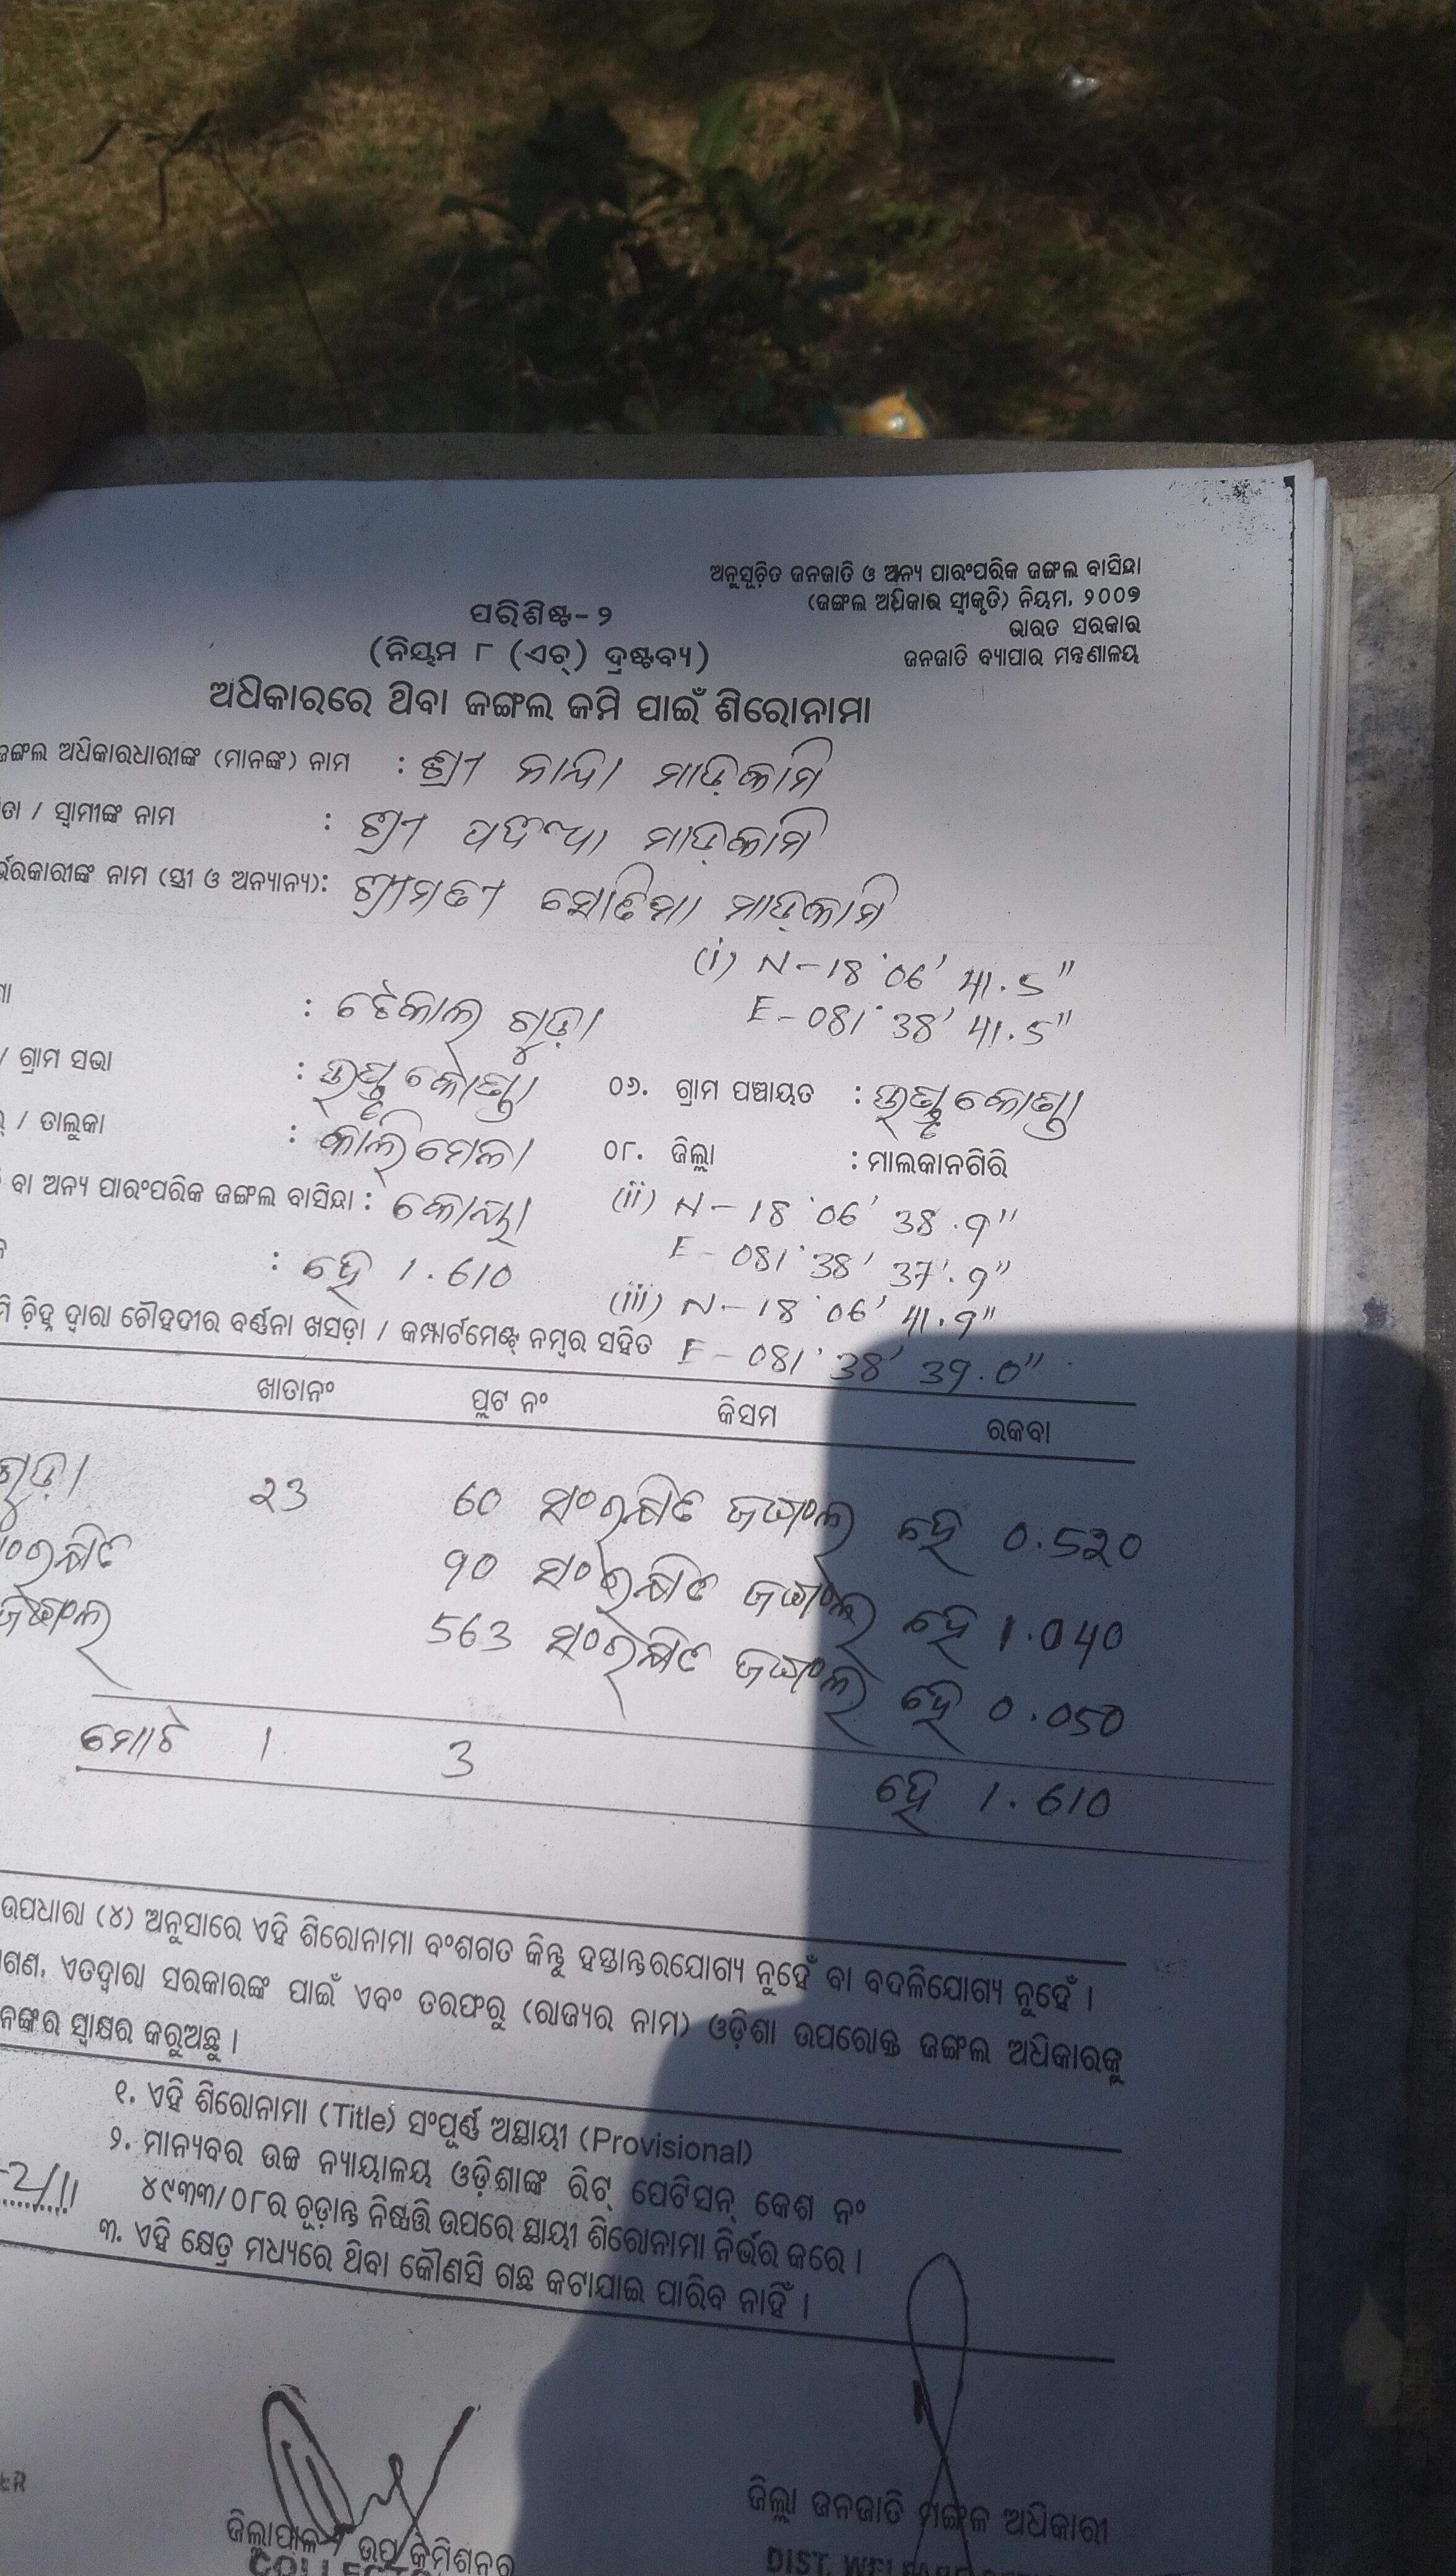 ଅନୁସୂଚିତ ଜନଜାତି ଓ ଅନ୍ୟ ପାରଂପରିକ ଜଙ୍ଗଲ ବାସିନ୍ଦା
(ଜଙ୍ଗଲ ଅଧିକାର ସ୍ୱୀକୃତି) ନିୟମ, ୨୦୦୭
ଭାରତ ସରକାର
ଜନଜାତି ବ୍ୟାପାର ମନ୍ତ୍ରଣାଳୟ
ପରିଶିଷ୍ଟ-୨
(ନିୟମ ୮ (ଏଚ୍) ଦ୍ରଷ୍ଟବ୍ୟ)
ଅଧିକାରରେ ଥିବା ଜଙ୍ଗଲ ଜମି ପାଇଁ ଶିରୋନାମା
ଜଙ୍ଗଲ ଅଧିକାରଧାରୀଙ୍କ (ମାନଙ୍କ) ନାମ : ଶ୍ରୀ ମାଡ଼କାମି
/ ସ୍ୱାମୀଙ୍କ ନାମ : ଶ୍ରୀ ମାଡ଼କାମି
ନାମ (ସ୍ତ୍ରୀ ଓ ଅନ୍ୟାନ୍ୟ): ଶ୍ରୀମତୀ ମାଡ଼କାମି
(i) N-18°06' 41.5"
E-081°38' 41.5"
: ଟେକାଲ ଗୁଡ଼ା
/ ଗ୍ରାମ ସଭା :
୦୬. ଗ୍ରାମ ପଞ୍ଚାୟତ :
/ ତାଲୁକା : କାଲିମେଳା
୦୮. ଜିଲ୍ଲା : ମାଲକାନଗିରି
ବା ଅନ୍ୟ ପାରଂପରିକ ଜଙ୍ଗଲ ବାସିନ୍ଦା : କୋୟା
(ii) N-18°06' 38.9"
E-081°38' 37.9"
: ହେ 1.610
(iii) N-18°06' 41.9"
ଚିହ୍ନ ଦ୍ୱାରା ଚୌହଦୀର ବର୍ଣ୍ଣନା ଖସଡ଼ା / କମ୍ପାର୍ଟମେଣ୍ଟ ନମ୍ବର ସହିତ E-081°38' 39.0"
ଖାତାନଂ ପ୍ଲଟ ନଂ କିସମ ରକବା
ଗୁଡ଼ା 23 60 ସଂରକ୍ଷିତ ଜଙ୍ଗଲ ହେ 0.520
ସଂରକ୍ଷିତ 90 ସଂରକ୍ଷିତ ଜଙ୍ଗଲ ହେ 1.040
ଜଙ୍ଗଲ 563 ସଂରକ୍ଷିତ ଜଙ୍ଗଲ ହେ 0.050
ମୋଟ 1 3 ହେ 1.610
ଉପଧାରା (୪) ଅନୁସାରେ ଏହି ଶିରୋନାମା ବଂଶଗତ କିନ୍ତୁ ହସ୍ତାନ୍ତରଯୋଗ୍ୟ ନୁହେଁ ବା ବଦଳିଯୋଗ୍ୟ ନୁହେଁ ।
ଏତଦ୍ୱାରା ସରକାରଙ୍କ ପାଇଁ ଏବଂ ତରଫରୁ (ରାଜ୍ୟର ନାମ) ଓଡ଼ିଶା ଉପରୋକ୍ତ ଜଙ୍ଗଲ ଅଧିକାରକୁ
ସ୍ୱାକ୍ଷର କରୁଅଛୁ ।
୧. ଏହି ଶିରୋନାମା (Title) ସଂପୂର୍ଣ୍ଣ ଅସ୍ଥାୟୀ (Provisional)
୨. ମାନ୍ୟବର ଉଚ୍ଚ ନ୍ୟାୟାଳୟ ଓଡ଼ିଶାଙ୍କ ରିଟ୍ ପେଟିସନ୍ କେଶ ନଂ
୪୯୩୩/୦୮ର ଚୂଡ଼ାନ୍ତ ନିଷ୍ପତ୍ତି ଉପରେ ସ୍ଥାୟୀ ଶିରୋନାମା ନିର୍ଭର କରେ ।
୩. ଏହି କ୍ଷେତ୍ର ମଧ୍ୟରେ ଥିବା କୌଣସି ଗଛ କଟାଯାଇ ପାରିବ ନାହିଁ ।
ଜିଲ୍ଲାପାଳ ଉପ କମିଶନର
ଜିଲ୍ଲା ଜନଜାତି ମଙ୍ଗଳ ଅଧିକାରୀ